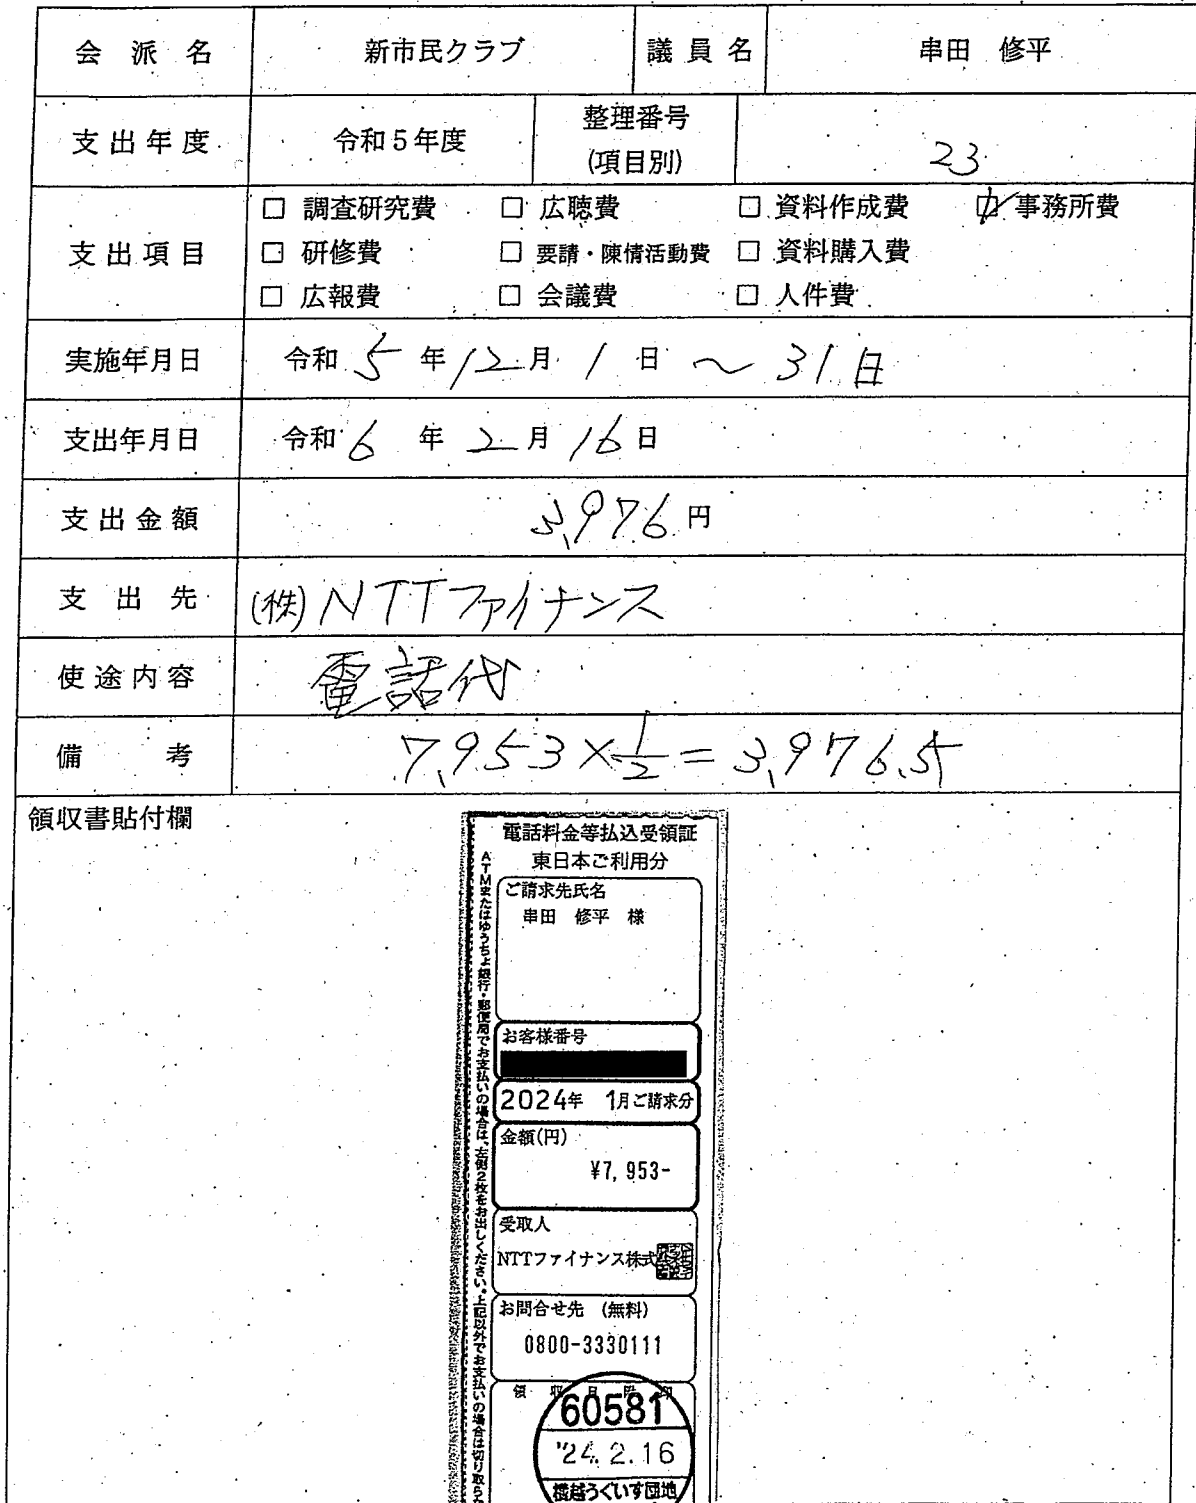 会派名 新市民クラブ 議員名 串田 修平
支出年度 令和5年度 整理番号(項目別) 23
支出項目
□ 調査研究費 □ 広聴費 □ 資料作成費 ☑ 事務所費
□ 研修費 □ 要請・陳情活動費 □ 資料購入費
□ 広報費 □ 会議費 □ 人件費
実施年月日 令和 5 年 12 月 1 日 〜 31 日
支出年月日 令和 6 年 2 月 16 日
支出金額 3,976 円
支出先 (株)NTTファイナンス
使途内容 電話代
備考 7,953×1/2=3,976.5
領収書貼付欄
電話料金等払込受領証
東日本ご利用分
ご請求先氏名
串田 修平 様
お客様番号
2024年 1月ご請求分
金額(円)
¥7,953-
受取人
NTTファイナンス株式
お問合せ先 (無料)
0800-3330111
領収日附印
60581
'24.2.16
うぐいす団地
ATMまたはゆうちょ銀行・郵便局でお支払いの場合は、左側2枚をお出しください。上記以外でお支払いの場合は切り取らな